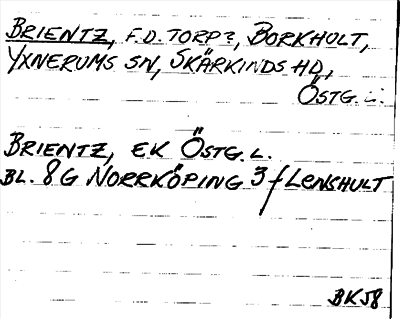 BRIENTZ, F.D. TORP?, BORKHULT,
YXNERUMS SN, SKÄRKINDS HD,
ÖSTG. L.
BRIENTZ, EK ÖSTG. L.
BL. 8G NORRKÖPING 3 f LENSHULT
BK58